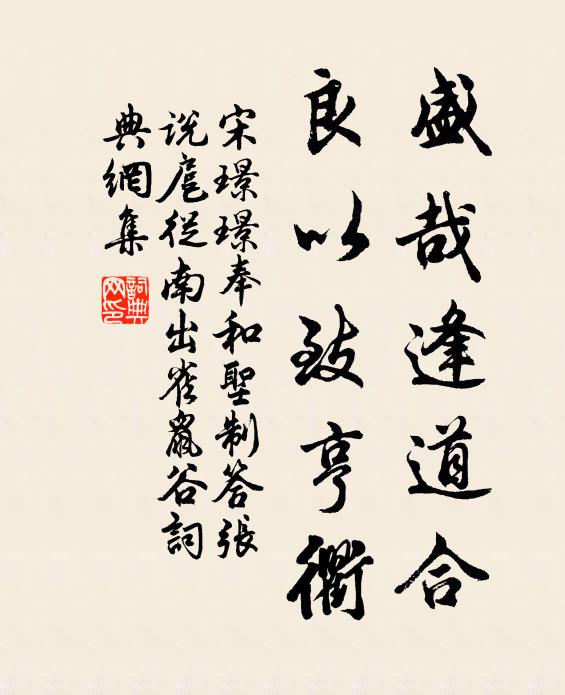 盛哉逢道合
良以致亨衢
宋璟璟奉和聖制答張
說扈從南出雀鼠谷詞
典網集
詞典
网印